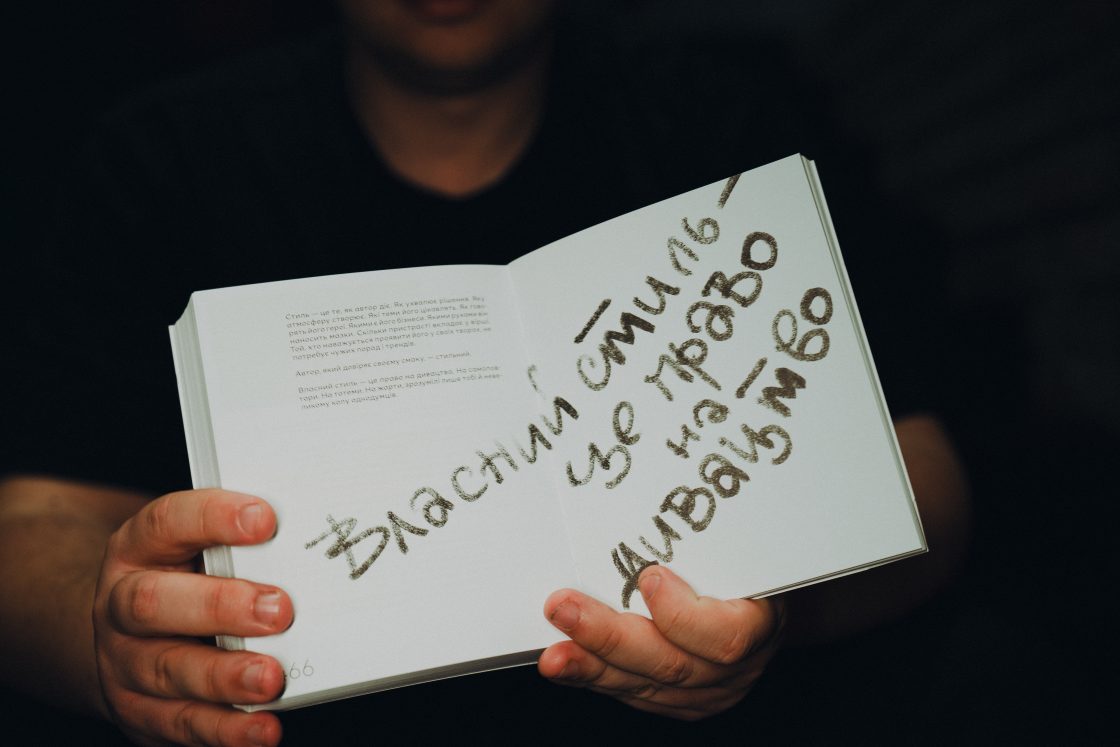 Стиль — це те, як автор діє. Як ухвалює рішення. Яку
атмосферу створює. Які теми його цікавлять. Як гово-
рять його герої. Якими є його бімеси. Якими рухами він
наносить мазки. Скільки пристрасті вкладає у вірші.
Той, хто наважується проявити його у своїх творах, не
потребує чужих порад і трендів.
Автор, який довіряє своєму смаку, — стильний.
Власний стиль — це право на дивацтво. На самопов-
тори. На готеми. На жарти, зрозумілі лише тобі й неве-
ликому колу однодумців.
Власний стиль —
це право
на
дивацтво
66